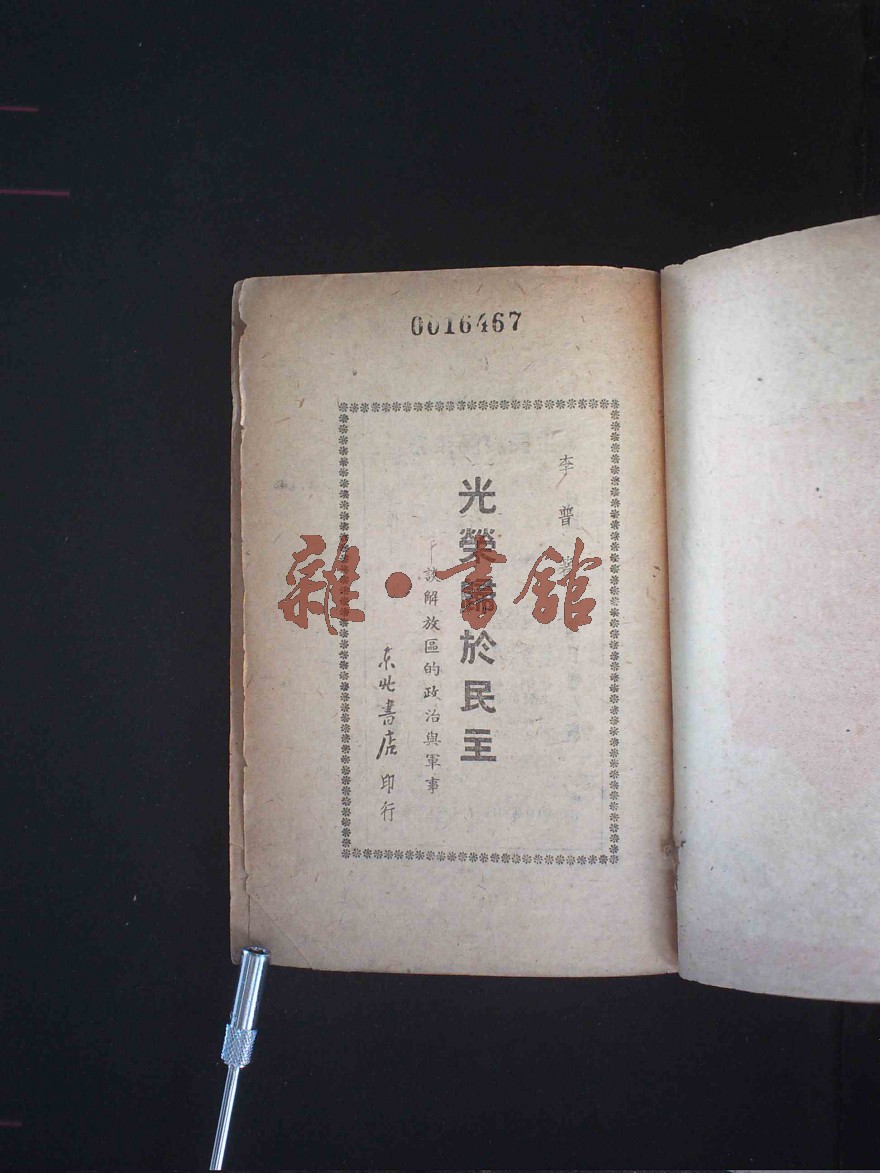 0016467
李普著
光榮歸於民主
——談解放區的政治與軍事
東北書店印行
雜·書館